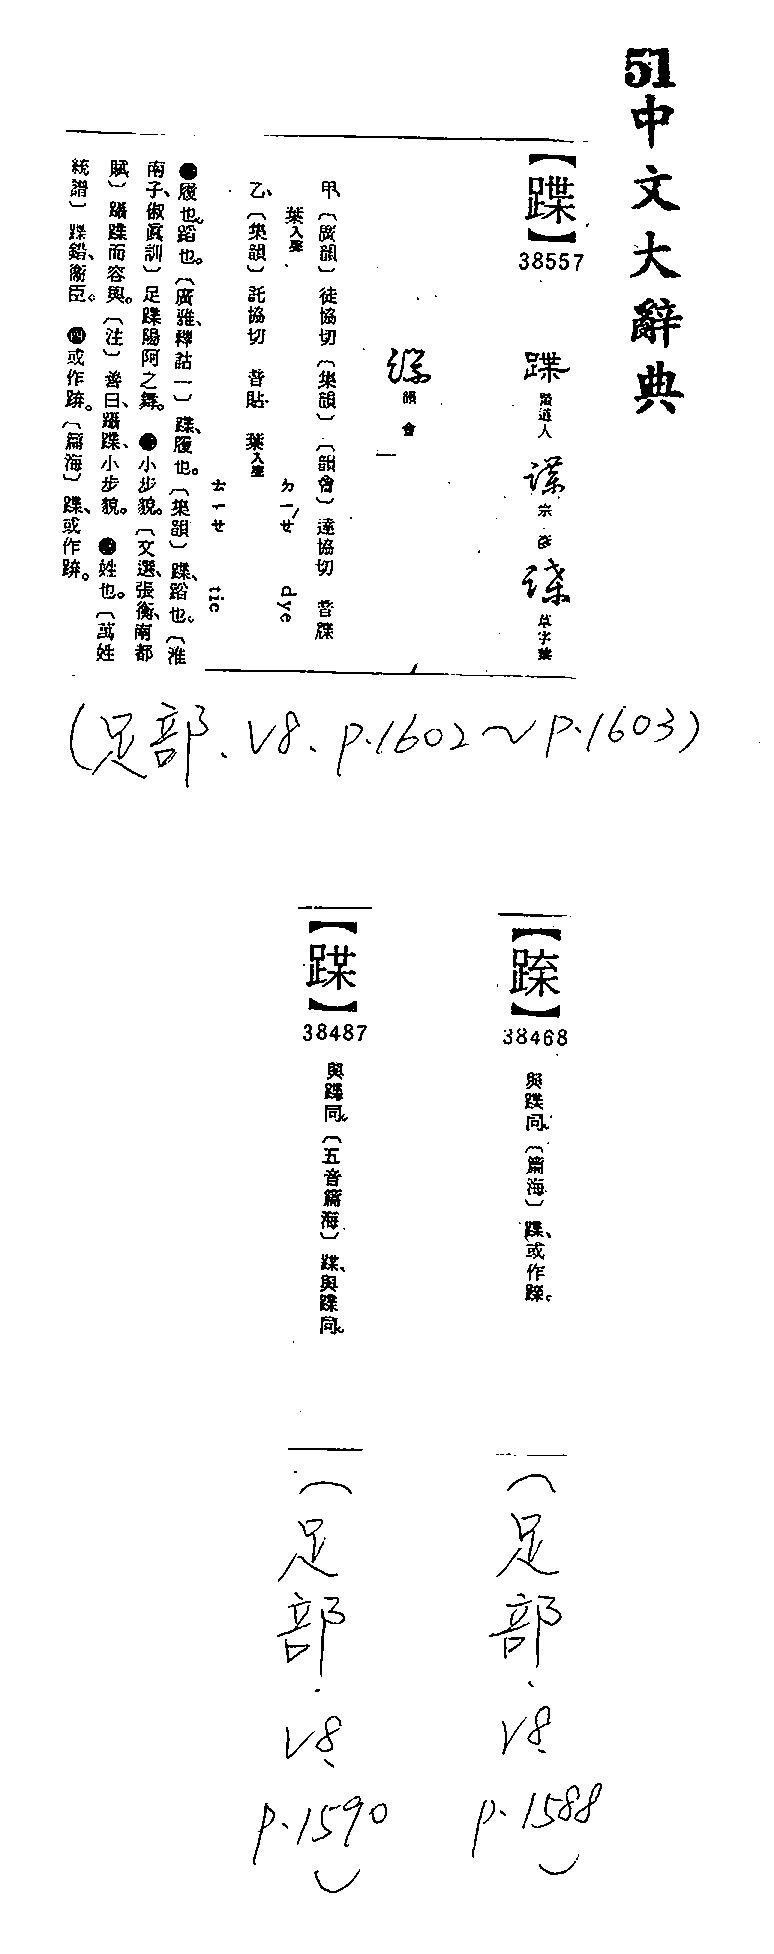 51中文大辭典
【蹀】
38557
蹀
草字彙
韻會
甲、〔廣韻〕徒協切〔集韻〕〔韻會〕達協切 音牒
葉入聲
ㄉㄧㄝˊ dye
乙、〔集韻〕託協切 音貼 葉入聲
ㄊㄧㄝ tie
㊀履也、蹈也。〔廣雅、釋詁一〕蹀、履也。〔集韻〕蹀、蹈也。〔淮
南子、俶眞訓〕足蹀陽阿之舞。㊁小步貌。〔文選、張衡、南都
賦〕躡蹀而容與。〔注〕善曰、躡蹀、小步貌。㊂姓也。〔萬姓
統譜〕蹀鍇、衞臣。㊃或作跡。〔篇海〕蹀、或作跡。
(足部、V8、P.1602~P.1603)
38468
與蹀同。〔篇海〕蹀、或作
(足部、V8、P.1588)
38487
與蹀同。〔五音篇海〕與蹀同。
(足部、V8、P.1590)